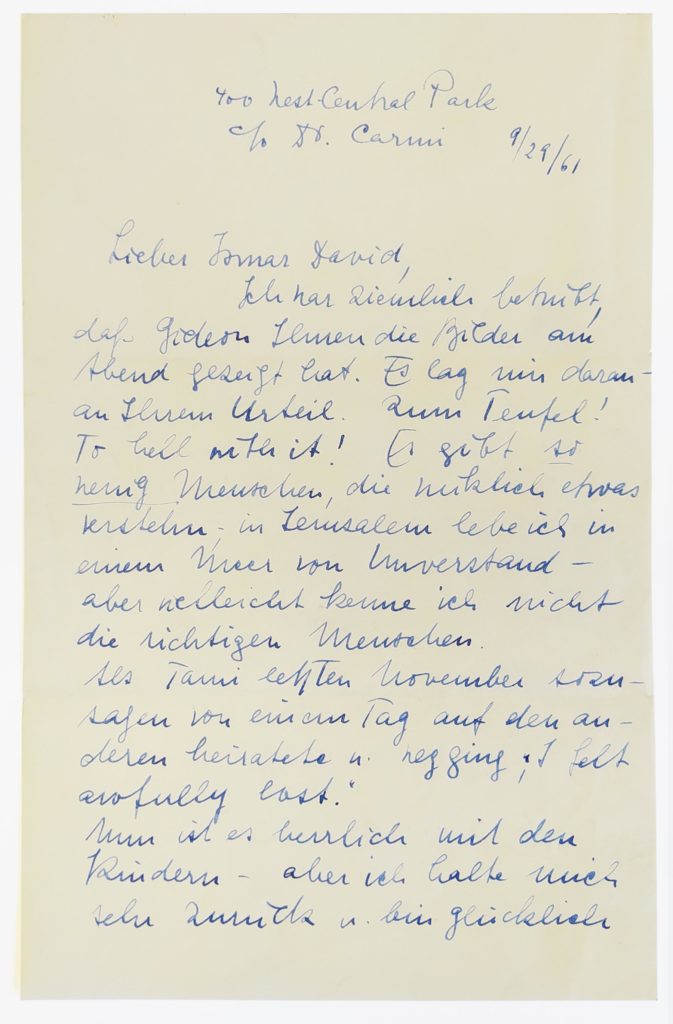 400 West-Central Park
c/o Dr. Carmi 9/29/61
Lieber Ismar David,
Ich war ziemlich betrübt,
daß Gideon Ihnen die Bilder am
Abend gezeigt hat. Es lag mir daran -
an Ihrem Urteil. Zum Teufel!
To hell with it! Es gibt so
wenig Menschen, die wirklich etwas
verstehn - in Jerusalem lebe ich in
einem Meer von Unverstand -
aber vielleicht kenne ich nicht
die richtigen Menschen.
Als Tami letzten November sozu-
sagen von einem Tag auf den an-
deren heiratete u. wegging, "I felt
awfully lost."
Nun ist es herrlich mit den
Kindern - aber ich halte mich
sehr zurück u. bin glücklich